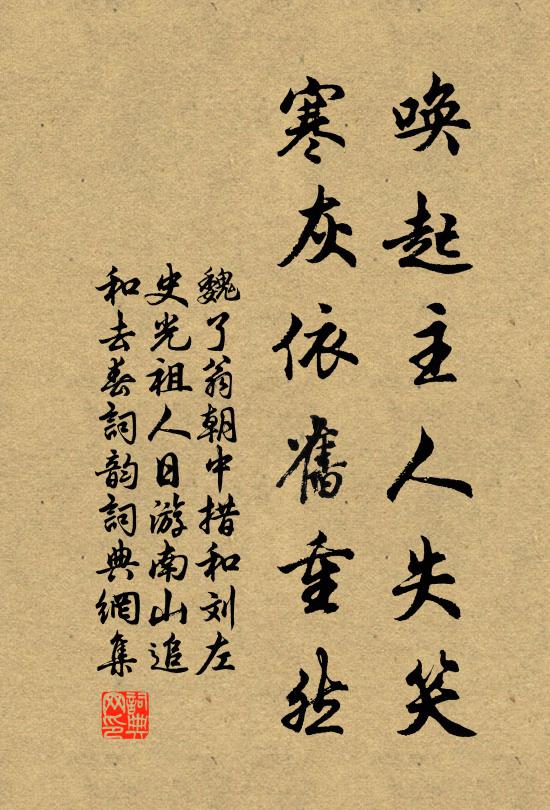 唤起主人失笑
寒灰依舊重然
魏了翁朝中措和刘左
史光祖人日游南山追
和去春詞韵詞典網集
詞典
网印